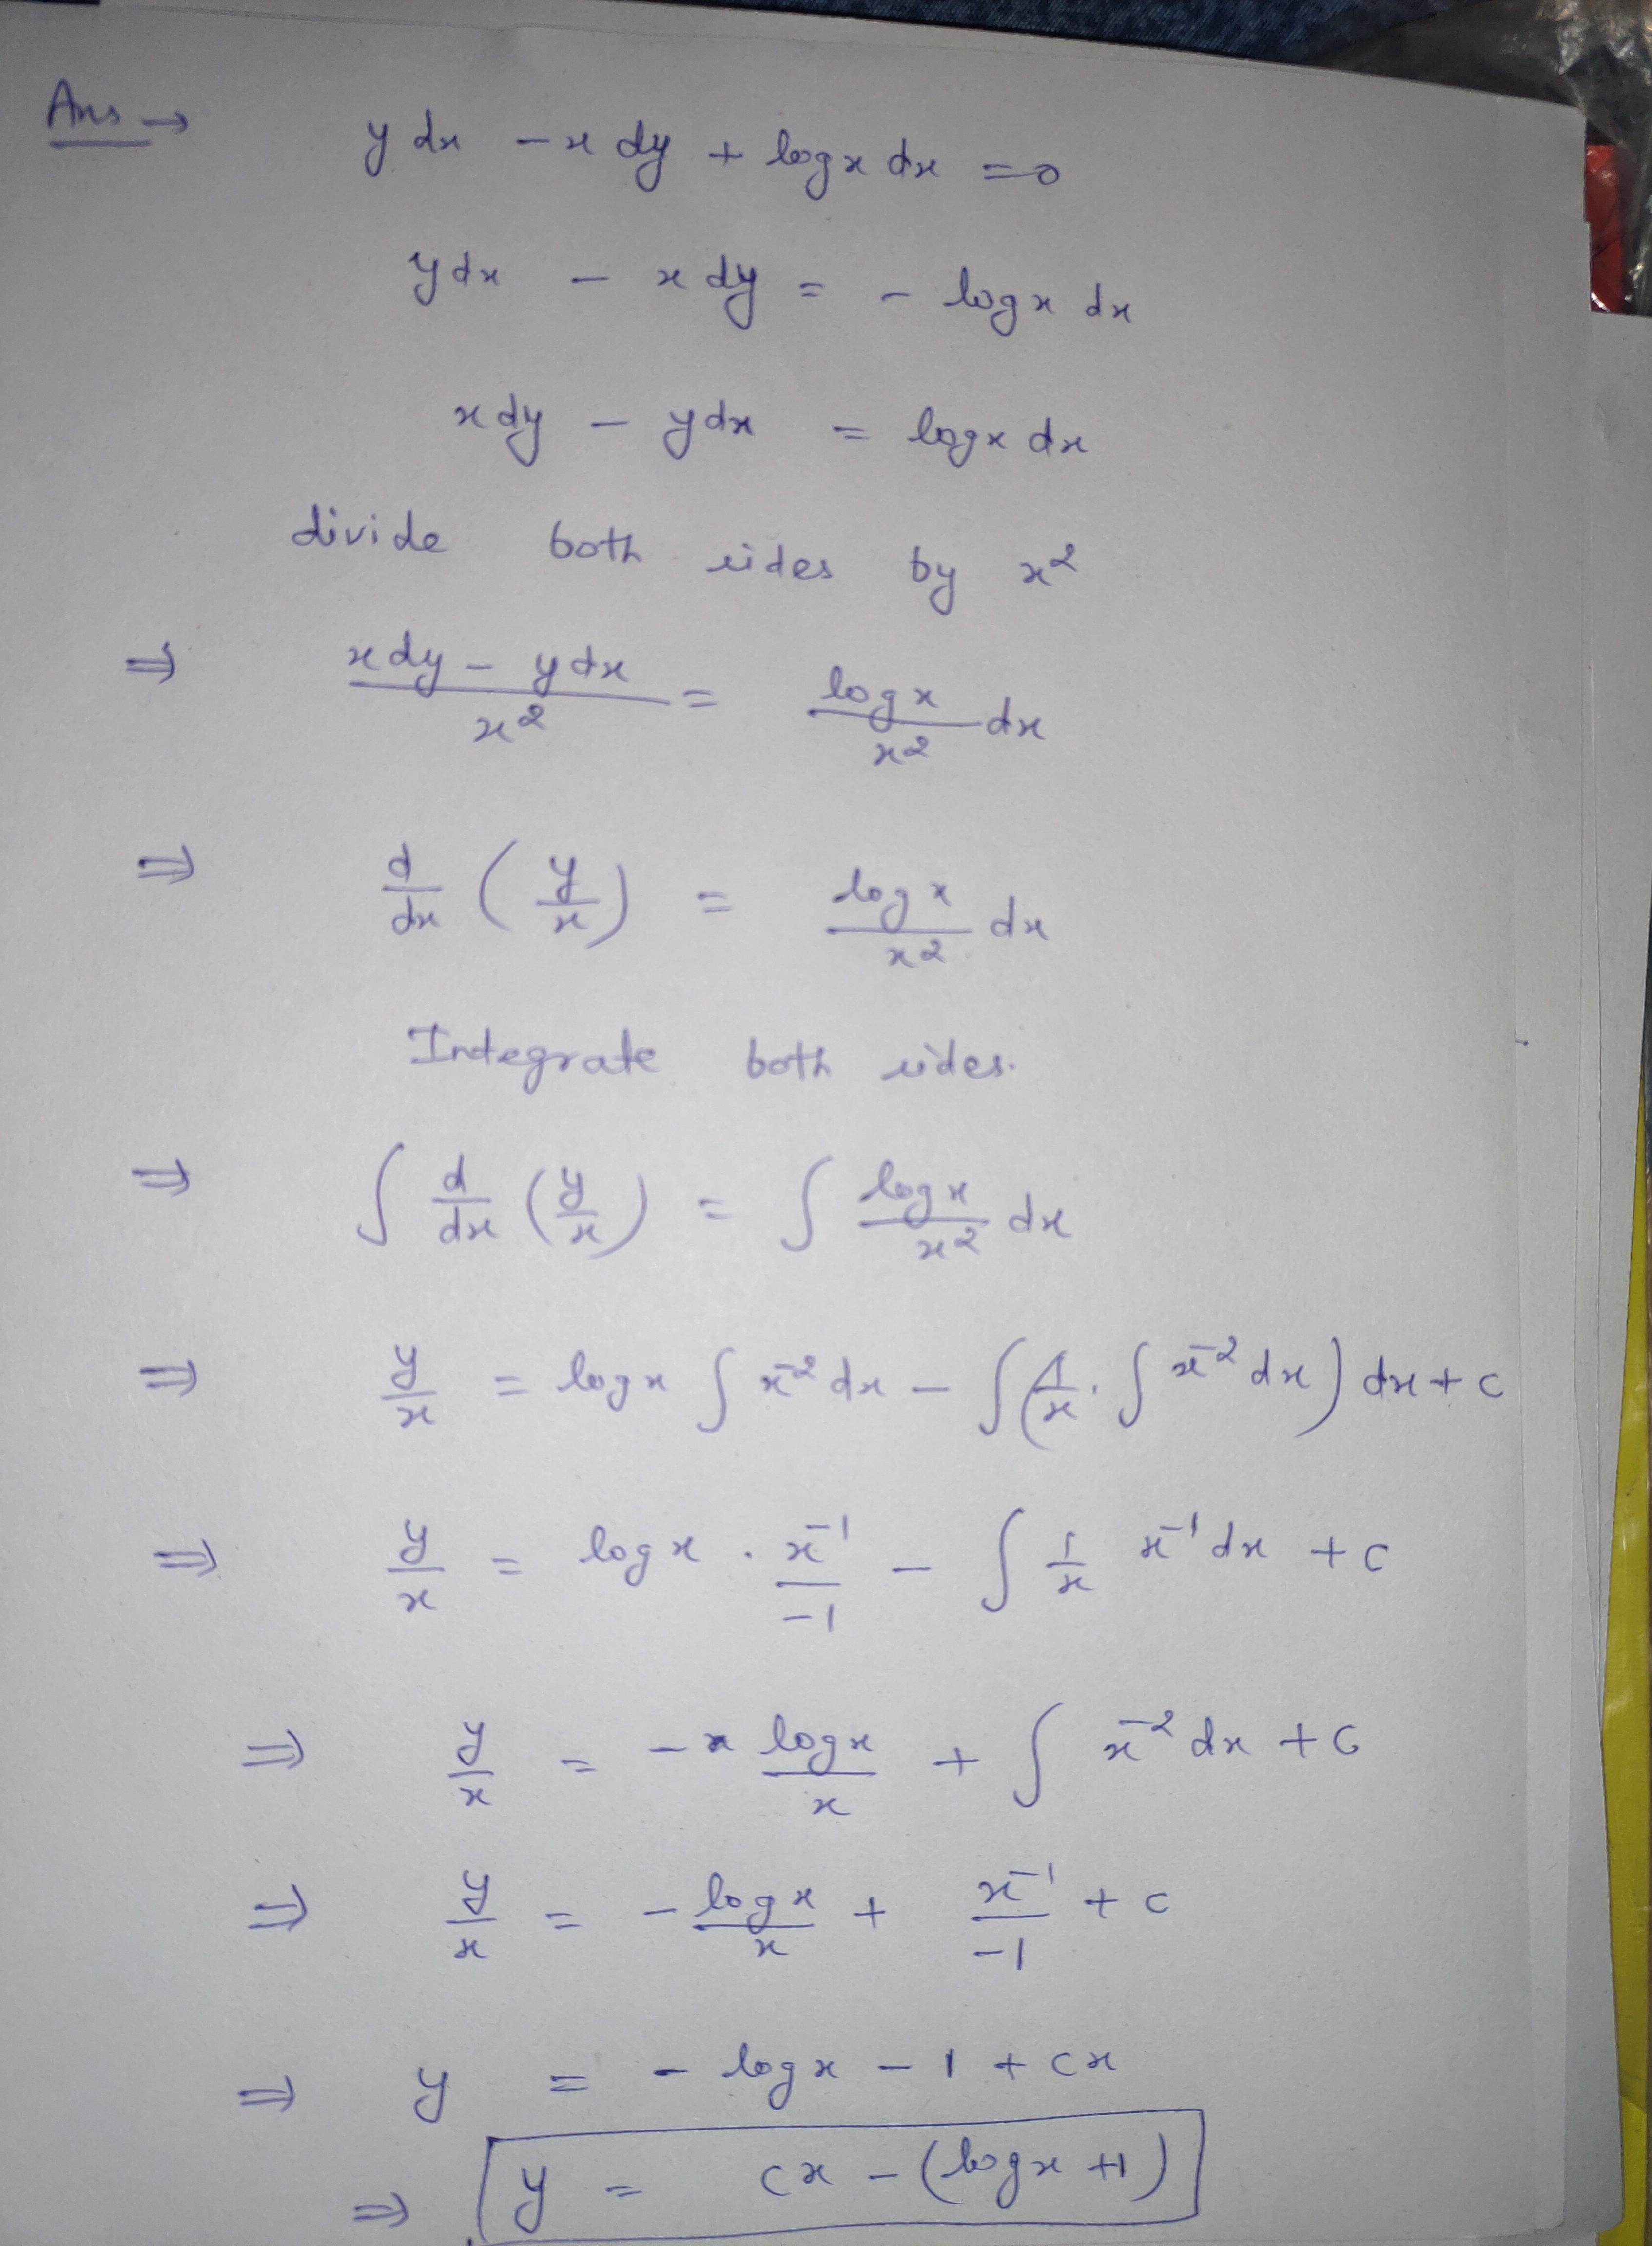 Ans → y dx - x dy + log x dx = 0
y dx - x dy = - log x dx
x dy - y dx = log x dx
divide both sides by x²
⇒ (x dy - y dx)/x² = (log x)/x² dx
⇒ d/dx (y/x) = (log x)/x² dx
Integrate both sides.
⇒ ∫ d/dx (y/x) = ∫ (log x)/x² dx
⇒ y/x = log x ∫ x⁻² dx - ∫ (1/x · ∫ x⁻² dx) dx + c
⇒ y/x = log x · x⁻¹/-1 - ∫ 1/x x⁻¹ dx + c
⇒ y/x = - (log x)/x + ∫ x⁻² dx + c
⇒ y/x = - (log x)/x + x⁻¹/-1 + c
⇒ y = - log x - 1 + cx
⇒ y = cx - (log x + 1)